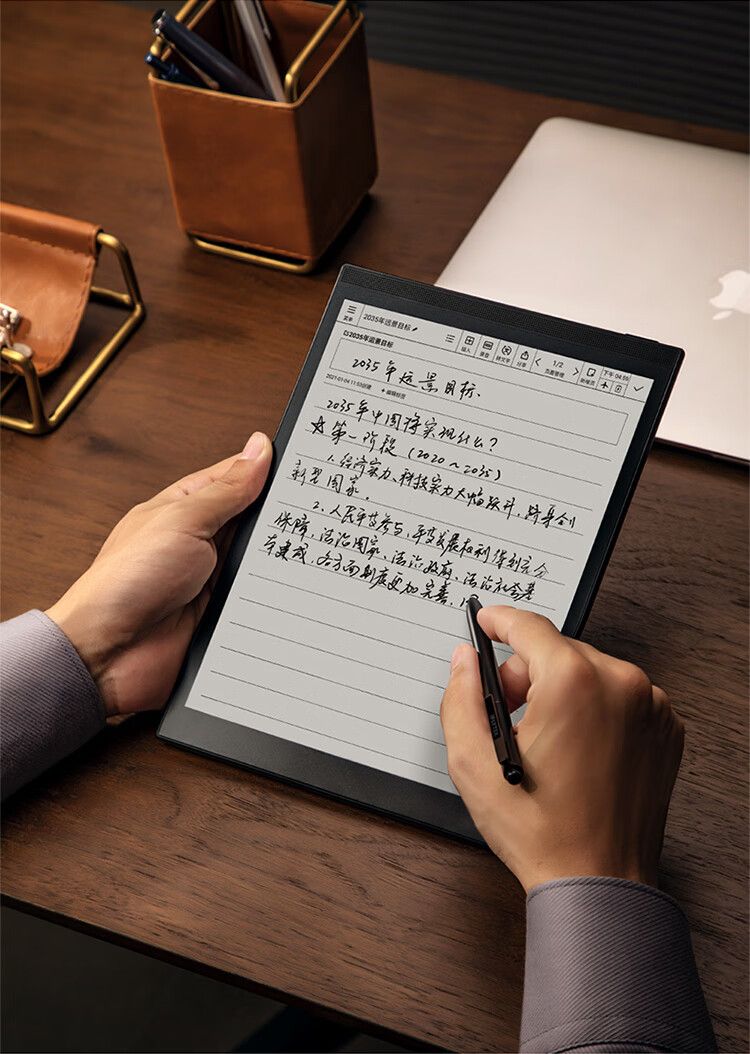 菜单
2035年远景目标
插入
录音
转文字
分享
1/2
页面管理
新增页
下午 04:56
2035年远景目标
2035年远景目标.
2021-01-04 11:53创建
+编辑标签
2035年中国将实现什么?
☆第一阶段(2020~2035)
1.经济实力、科技实力大幅跃升,跻身创
新型国家。
2、人民平等参与、平等发展权利得到充分
保障,法治国家、法治政府、法治社会基
本建成,各方面制度更加完善,